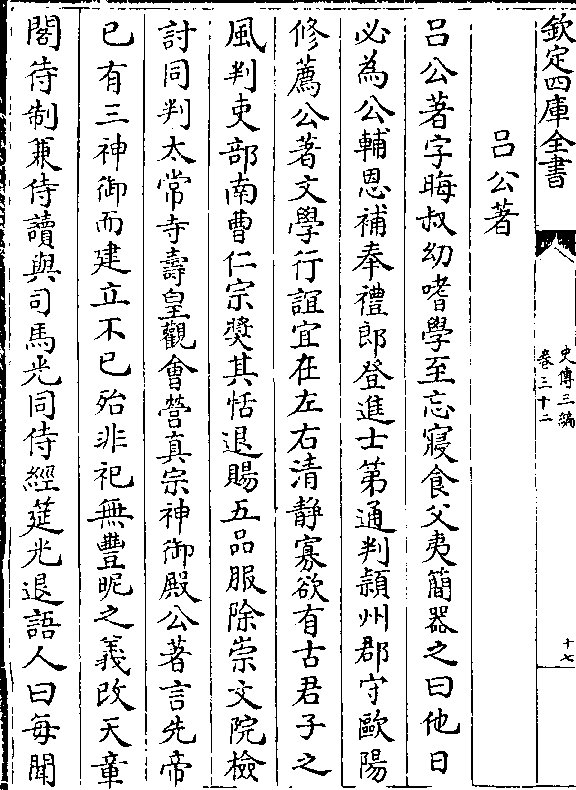 欽定四庫全書
史傳三編
卷三十二
十七
吕公著
吕公著字晦叔幼嗜學至忘寢食父夷簡器之曰他日
必為公輔恩補奉禮郎登進士第通判潁州郡守歐陽
修薦公著文學行誼宜在左右清靜寡欲有古君子之
風判吏部南曹仁宗奬其恬退賜五品服除崇文院檢
討同判太常寺壽皇觀會營真宗神御殿公著言先帝
已有三神御而建立不已殆非祀無豐昵之義改天章
閣待制兼侍讀與司馬光同侍經筵光退語人曰每聞